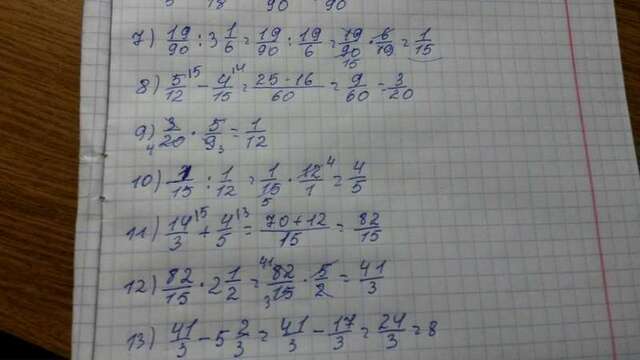 90 90
7) 19/90 : 3 1/6 = 19/90 : 19/6 = 19/90 · 6/19 = 1/15
15
8) 5/12 ⁾⁵ - 4/15 ⁾⁴ = 25-16/60 = 9/60 = 3/20
9) 3/20 · 5/9 = 1/12
4 3
10) 1/15 : 1/12 = 1/15 · 12/1 ⁴ = 4/5
5
11) 14/3 ⁾⁵ + 4/5 ⁾³ = 70+12/15 = 82/15
12) 82/15 · 2 1/2 = ⁴¹ 82/15 · 5/2 = 41/3
3
13) 41/3 - 5 2/3 = 41/3 - 17/3 = 24/3 = 8